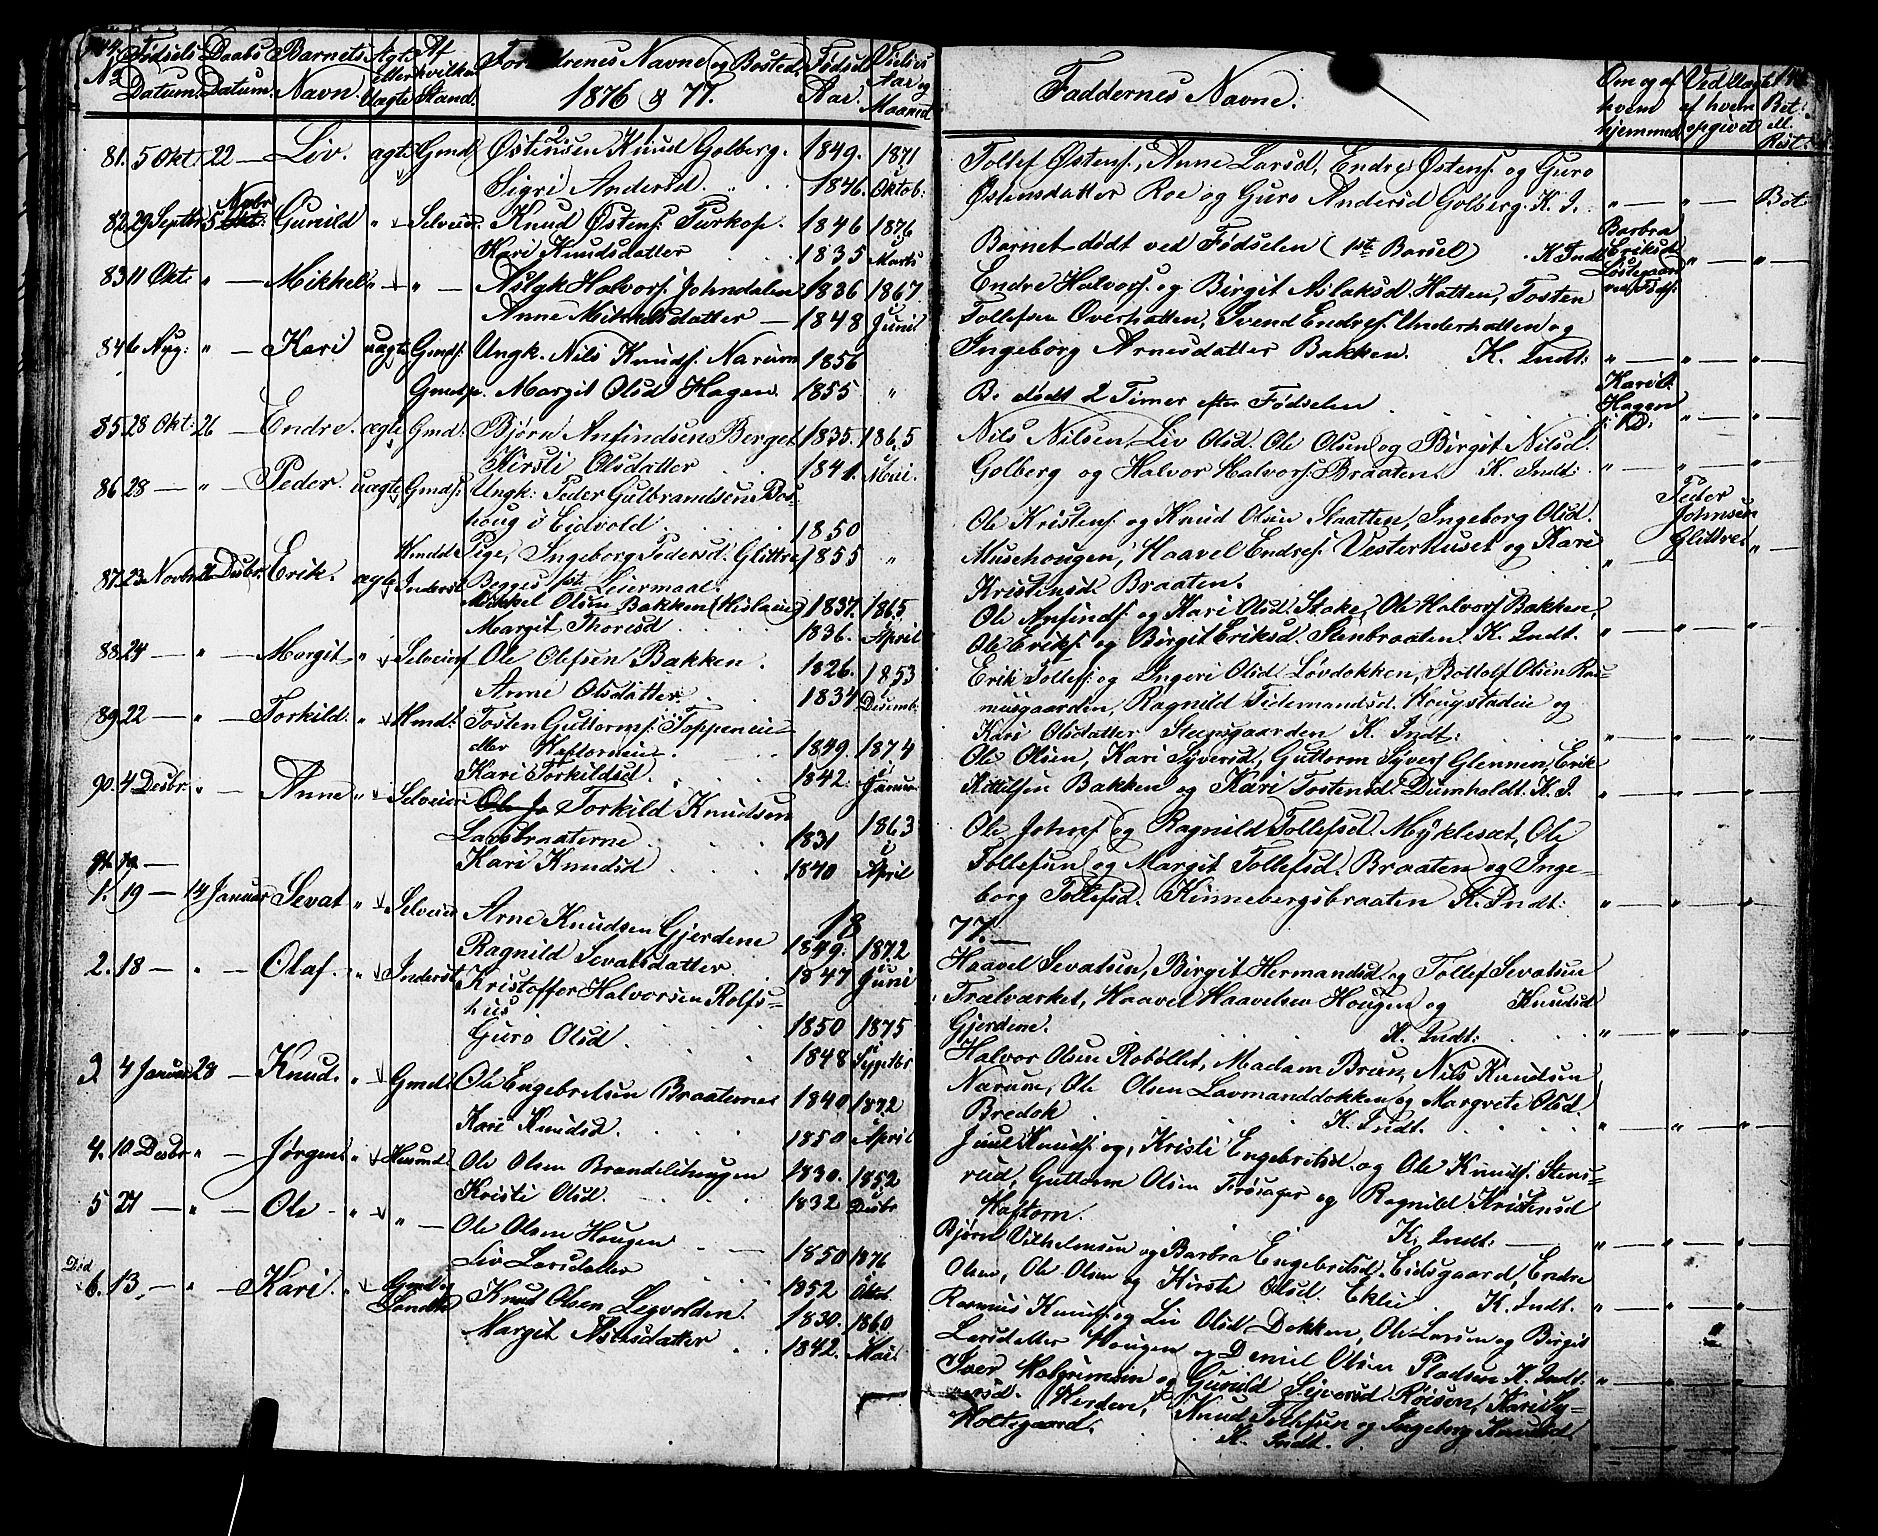 144.
No Fødsels Datum. Daabs Datum. Barnets Navn. Ægte eller uægte Af hvilken Stand. Forældrenes Navne og Bosted. 1876 & 77. Fødsel Aar. Vielses Aar og Maaned
Faddernes Navne. Om og af hvem hjemmed. Ved Uægte af hvem opgivet Bet: el. Rest:
81. 5 Okt 22 — Liv. ægte Gmd Østensen Knud Golberg. 1849. 1871
Sigri Andersd. 1846. Oktob:
82 29 Septbr 5 Novbr Gunild " Selveier. Knud Østens: Turkop. 1846 1876
Kari Knudsdatter 1835 Marts
83 11 Okt: " — Mikkel " " — Aslak Halvors: Johndalen 1836 1867
Anne Mikkelsdatter — 1848 Junil
84 6 Aug: " — Kari uægte Gmds: Ungk. Nils Knuds: Narum 1856
Gmdsp. Margit Olsd Hagen. 1855 "
85 28 Okt: 26 — Endre. ægte Gmd: Bjørn Anfindsen Berget 1835. 1865
Kirsti Olsdatter 1841. Mai.
86 28 — " — Peder. uægte Gmds: Ungk: Peder Gulbrandsen Bos-
houg i Eidvold 1850
Pige, Ingeborg Pedersd. Glittre 1855 "
Begges 1st. Leiermaal.
87. 23 Novbr 26 Desbr. Erik. ægte Inderst Mikkel Olsen Bakken 1837. 1865
Margit Thoresd 1836. April
88 24 " — Margit " Selveier Ole Olefsen Bakken. 1826. 1853
Anne Olsdatter. 1834 Desemb.
89 22 — " — Torkild. " Hmd: Tosten Guttorms: Toppeneie
eller Haftorneie. 1849. 1874
Kari Torkildsd. 1842. Januar
90. 4 Desbr. " — Anne " Selveier Torkild Knudsen
Larsbraaterne 1831 1863
Kari Knudsd 1840 April
18
1. 19 — 14 Januar Sevat " Selveier Arne Knudsen Gjerdene 1849. 1872
Ragnild Sevatsdatter 1847 Juni
2. 18 — " — Olaf. " Inderst Kristoffer Halvorsen Rolfs-
hus 1850 1875
Guro Olsd. 1848 Septbr
3 4 Januar 28 — Knud. " Gmd: Ole Engebretsen Braaternes 1840 1872
Kari Knudsd. 1850 April
4. 10 Desbr " — Jørgen " Husmd Ole Olsen Brandelihougen 1830. 1852
Kristi Olsd. 1832 Desbr
5 27 — " — Ole " " — Ole Olsen Hougen 1850 1876
Liv Larsdatter 1852 Oktob.
Død
6. 13. — " — Kari. " Gmd og Knud Olsen Legvolden. 1830. 1860
Margit Nilsdatter 1842. Mai
Tollef Østens:, Anne Larsd, Endre Østens: og Guro
Østensdatter Roe og Guro Andersd Golberg. K. I. " — " — Bet:
Barnet dødt ved Fødselen (1ste Barsel) K. Indt Barbra Eriksd
Endre Halvors: og Birgit Aslaksd. Hatten, Tosten
Tollefsen Overhatten, Svend Endres: Underhatten og
Ingeborg Arnesdatter Bakken. K. Indt: " — " — " —
B. dødt 2 Timer efter Fødselen Kari O. Hagen
Nils Nilsen, Liv Olsd. Ole Olsen og Birgit Nilsd.
Golberg og Halvor Halvors: Braaten. K. Indt: " — " — " —
Ole Kristens: og Knud Olsen Slaatten, Ingeborg Olsd. Peder Johnsen Glittre.
Musehougen, Haavel Endres: Vesterhuset og Kari
Kristensd Braaten.
Ole Anfinds: og Kari Olsd. Stake, Ole Halvors: Bakken,
Ole Eriks: og Birgit Eriksd. Stenbraaten. K. Indt. " — " — " —
Erik Tollefs: og Ingeri Olsd. Løvdokken, Bottolf Olsen Ras-
musgaarden, Ragnild Tidemandsd. Hougstadeie og
Kari Olsdatter K. Indt: " — " — " —
Ole Olsen, Kari Syversd, Guttorm Syvers: Glennen, Erik
Kittilsen Bakken og Kari Tostensd. Dumholdt. K. I. " — " — " —
Ole Johns: og Ragnild Tollefsd. Myklesæt, Ole
Tollefsen og Margit Tollefsd. Braaten og Inge-
borg Tollefsd. Kinnebergsbraaten K. Indt: " — " — " —
77. —
Haavel Sevatsen, Birgit Hermandsd. og Tollef Sevatsen
Trælværket, Haavel Haavelsen Hougen og Knudsd
Gjerdene. K. Indt: " — " — " —
Halvor Olsen Robøllet, Madam Brun, Nils Knudsen
Narum, Ole Olsen Lavmanddokken og Margrete Olsd.
Bredok K. Indt. " — " — " —
Juul Knuds: og Kristi Engebretsd. og Ole Knuds: Stens-
rud, Guttorm Olsen Frøsager og Ragnild Kristensd
Haftorn. K. Indt: — " — " — " —
Bjørn Vilhelmsen og Barbra Engebretsd. Eidsgaard, Endre
Olsen, Ole Olsen og Kirsti Olsd. Eklie K. Indt. " — " — " —
Rasmus Knuds: og Liv Olsd Dokken, Ole Larsen og Birgit
Larsdatter Hougen og Olsen Pladsen K. Indt: " — " — " —
Iver Halgrimsen og Gunild Syversd. Roisen, Kari Sy-
versd. Knud Tollefsen og Ingeborg Knudsd.
Holtsgaard. K. Indt. " — " — " —